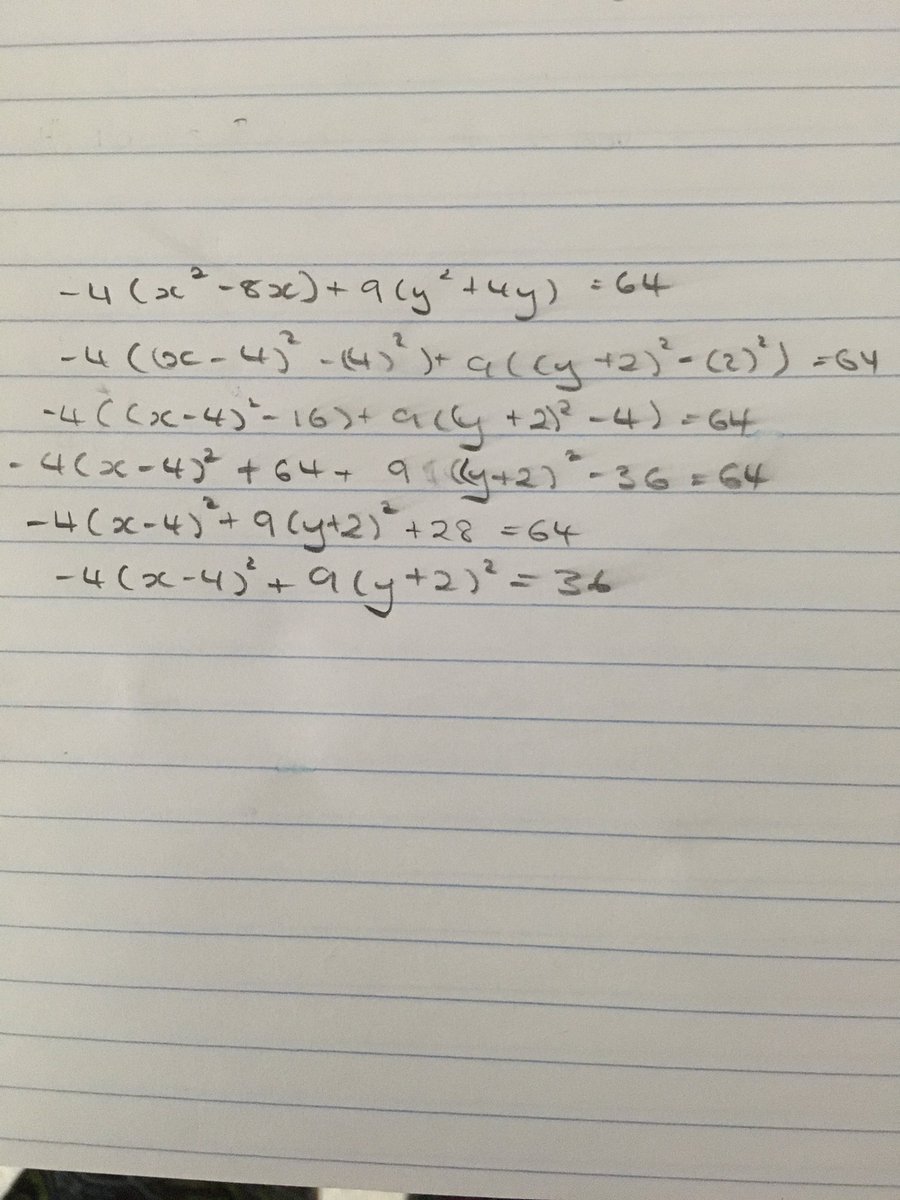 -4(x²-8x)+9(y²+4y) =64
-4((x-4)²-(4)²)+9((y+2)²-(2)²) =64
-4((x-4)²-16)+9((y+2)²-4)=64
-4(x-4)²+64+ 9((y+2)²-36=64
-4(x-4)²+9(y+2)²+28 =64
-4(x-4)²+9(y+2)²=36